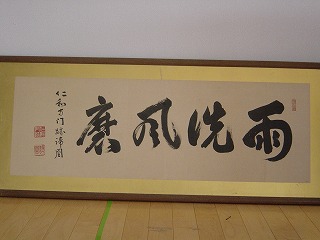 雨洗風磨
仁和寺門跡浄周